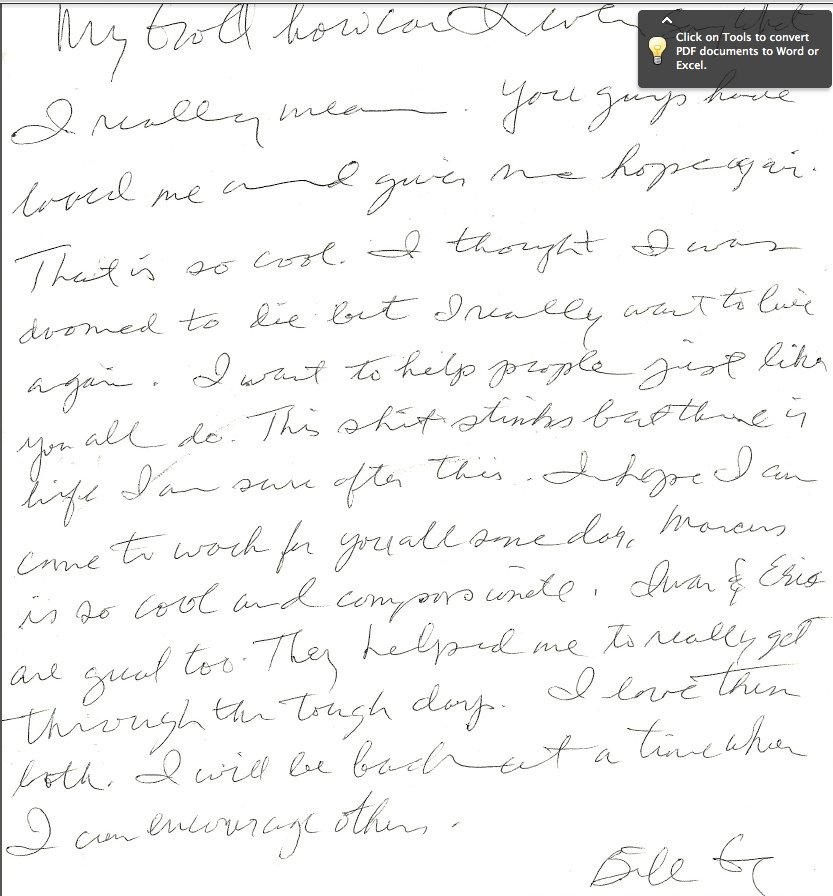 My God how can I even say what
I really mean. You guys have
loved me and given me hope again.
That is so cool. I thought I was
doomed to die but I really want to live
again. I want to help people just like
you all do. This shit stinks but there is
life I am sure after this. I hope I can
come to work for you all some day. Marcus
is so cool and compassionate. Ivan & Eric
are great too. They helped me to really get
through the tough days. I love them
both. I will be back at a time when
I can encourage others.
Bill
Click on Tools to convert
PDF documents to Word or
Excel.